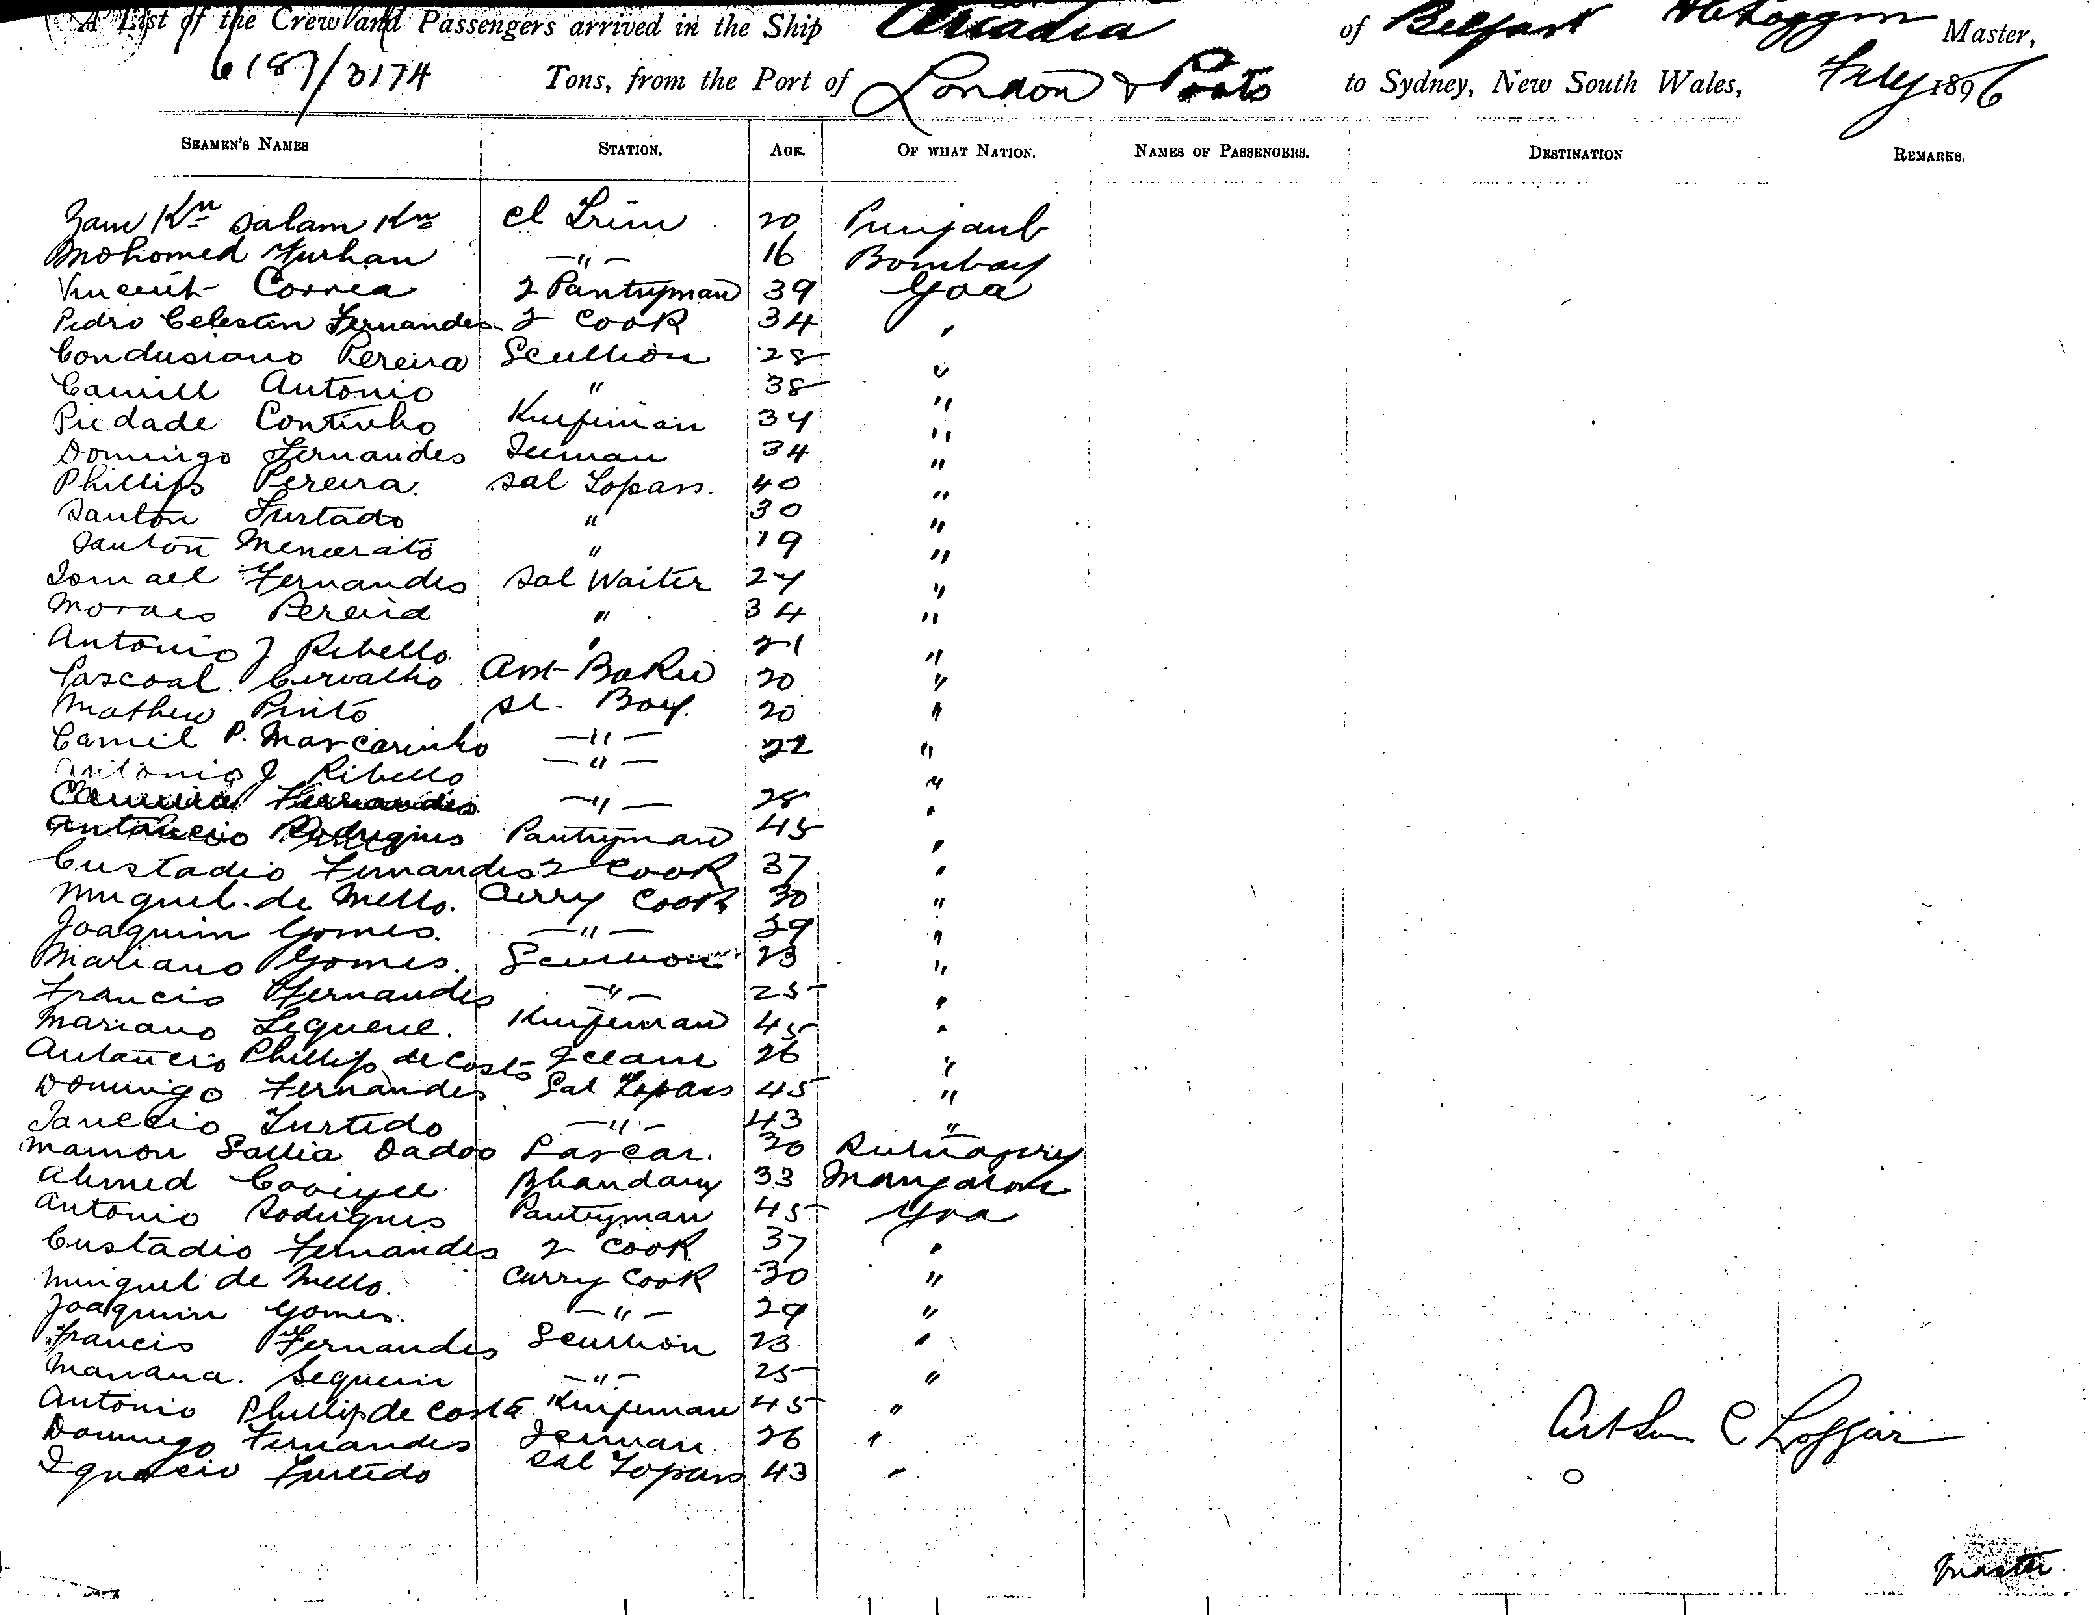 A List of the Crew and Passengers arrived in the Ship Arcadia of Belfast Master,
6187/3174 Tons, from the Port of London & Ports to Sydney, New South Wales, July 1896
SEAMEN'S NAMES STATION. AGE OF WHAT NATION. NAMES OF PASSENGERS. DESTINATION REMARKS.
Zam Kn Salam Kn Cl Trim 20 Punjaub
Mohomed Furhan —"— 16 Bombay
Vincent Correa 2 Pantryman 39 Goa
Pedro Celestin Fernandes 2 Cook 34 "
Pereira Scullion 28 "
Camill Antonio " 38 "
Piedade Continho 34 "
Domingo Fernandes 34 "
Phillips Pereira. Sal Topass. 40 "
Santon Furtado " 30 "
Santon " 19 "
Ismael Fernandes Sal Waiter 24 "
Moraes Pereira " 34 "
Antonio J Ribello " 21 "
Pascoal Carvalho Asst Baker 20 "
Mathew Pinto St. Boy. 20 "
Camil P. Marcarinho —"— 22 "
Antonio J Ribello —"— "
Fernandes —"— 28 "
Rodrigues Pantryman 45 "
Custadio Fernandes 2 Cook 37 "
Miguel de Mello. Curry Cook 30 "
Joaquim Gomes. —"— 29 "
Mariano Gomes. Scullion 23 "
Francis Fernandes —"— 25 "
Mariano 45 "
Phillip de Costa 26 "
Domingo Fernandes Sal Topass 45 "
Furtado —"— 43 "
Mamon Dadoo Lascar. 20
Ahmed Bhandary 33 Mangalore
Antonio Rodrigues Pantryman 45 Goa
Custadio Fernandes 2 Cook 37 "
Minguel de Mello. Curry Cook 30 "
Joaquim Gomes. —"— 29 "
Francis Fernandes Scullion 23 "
Mariana. Sequeir —"— 25 "
Antonio Phillip de Costa 45 "
Domingo Fernandes 26 "
Ignacio Furtado Sal Topass 43 "
Arthur C Loggin
Master